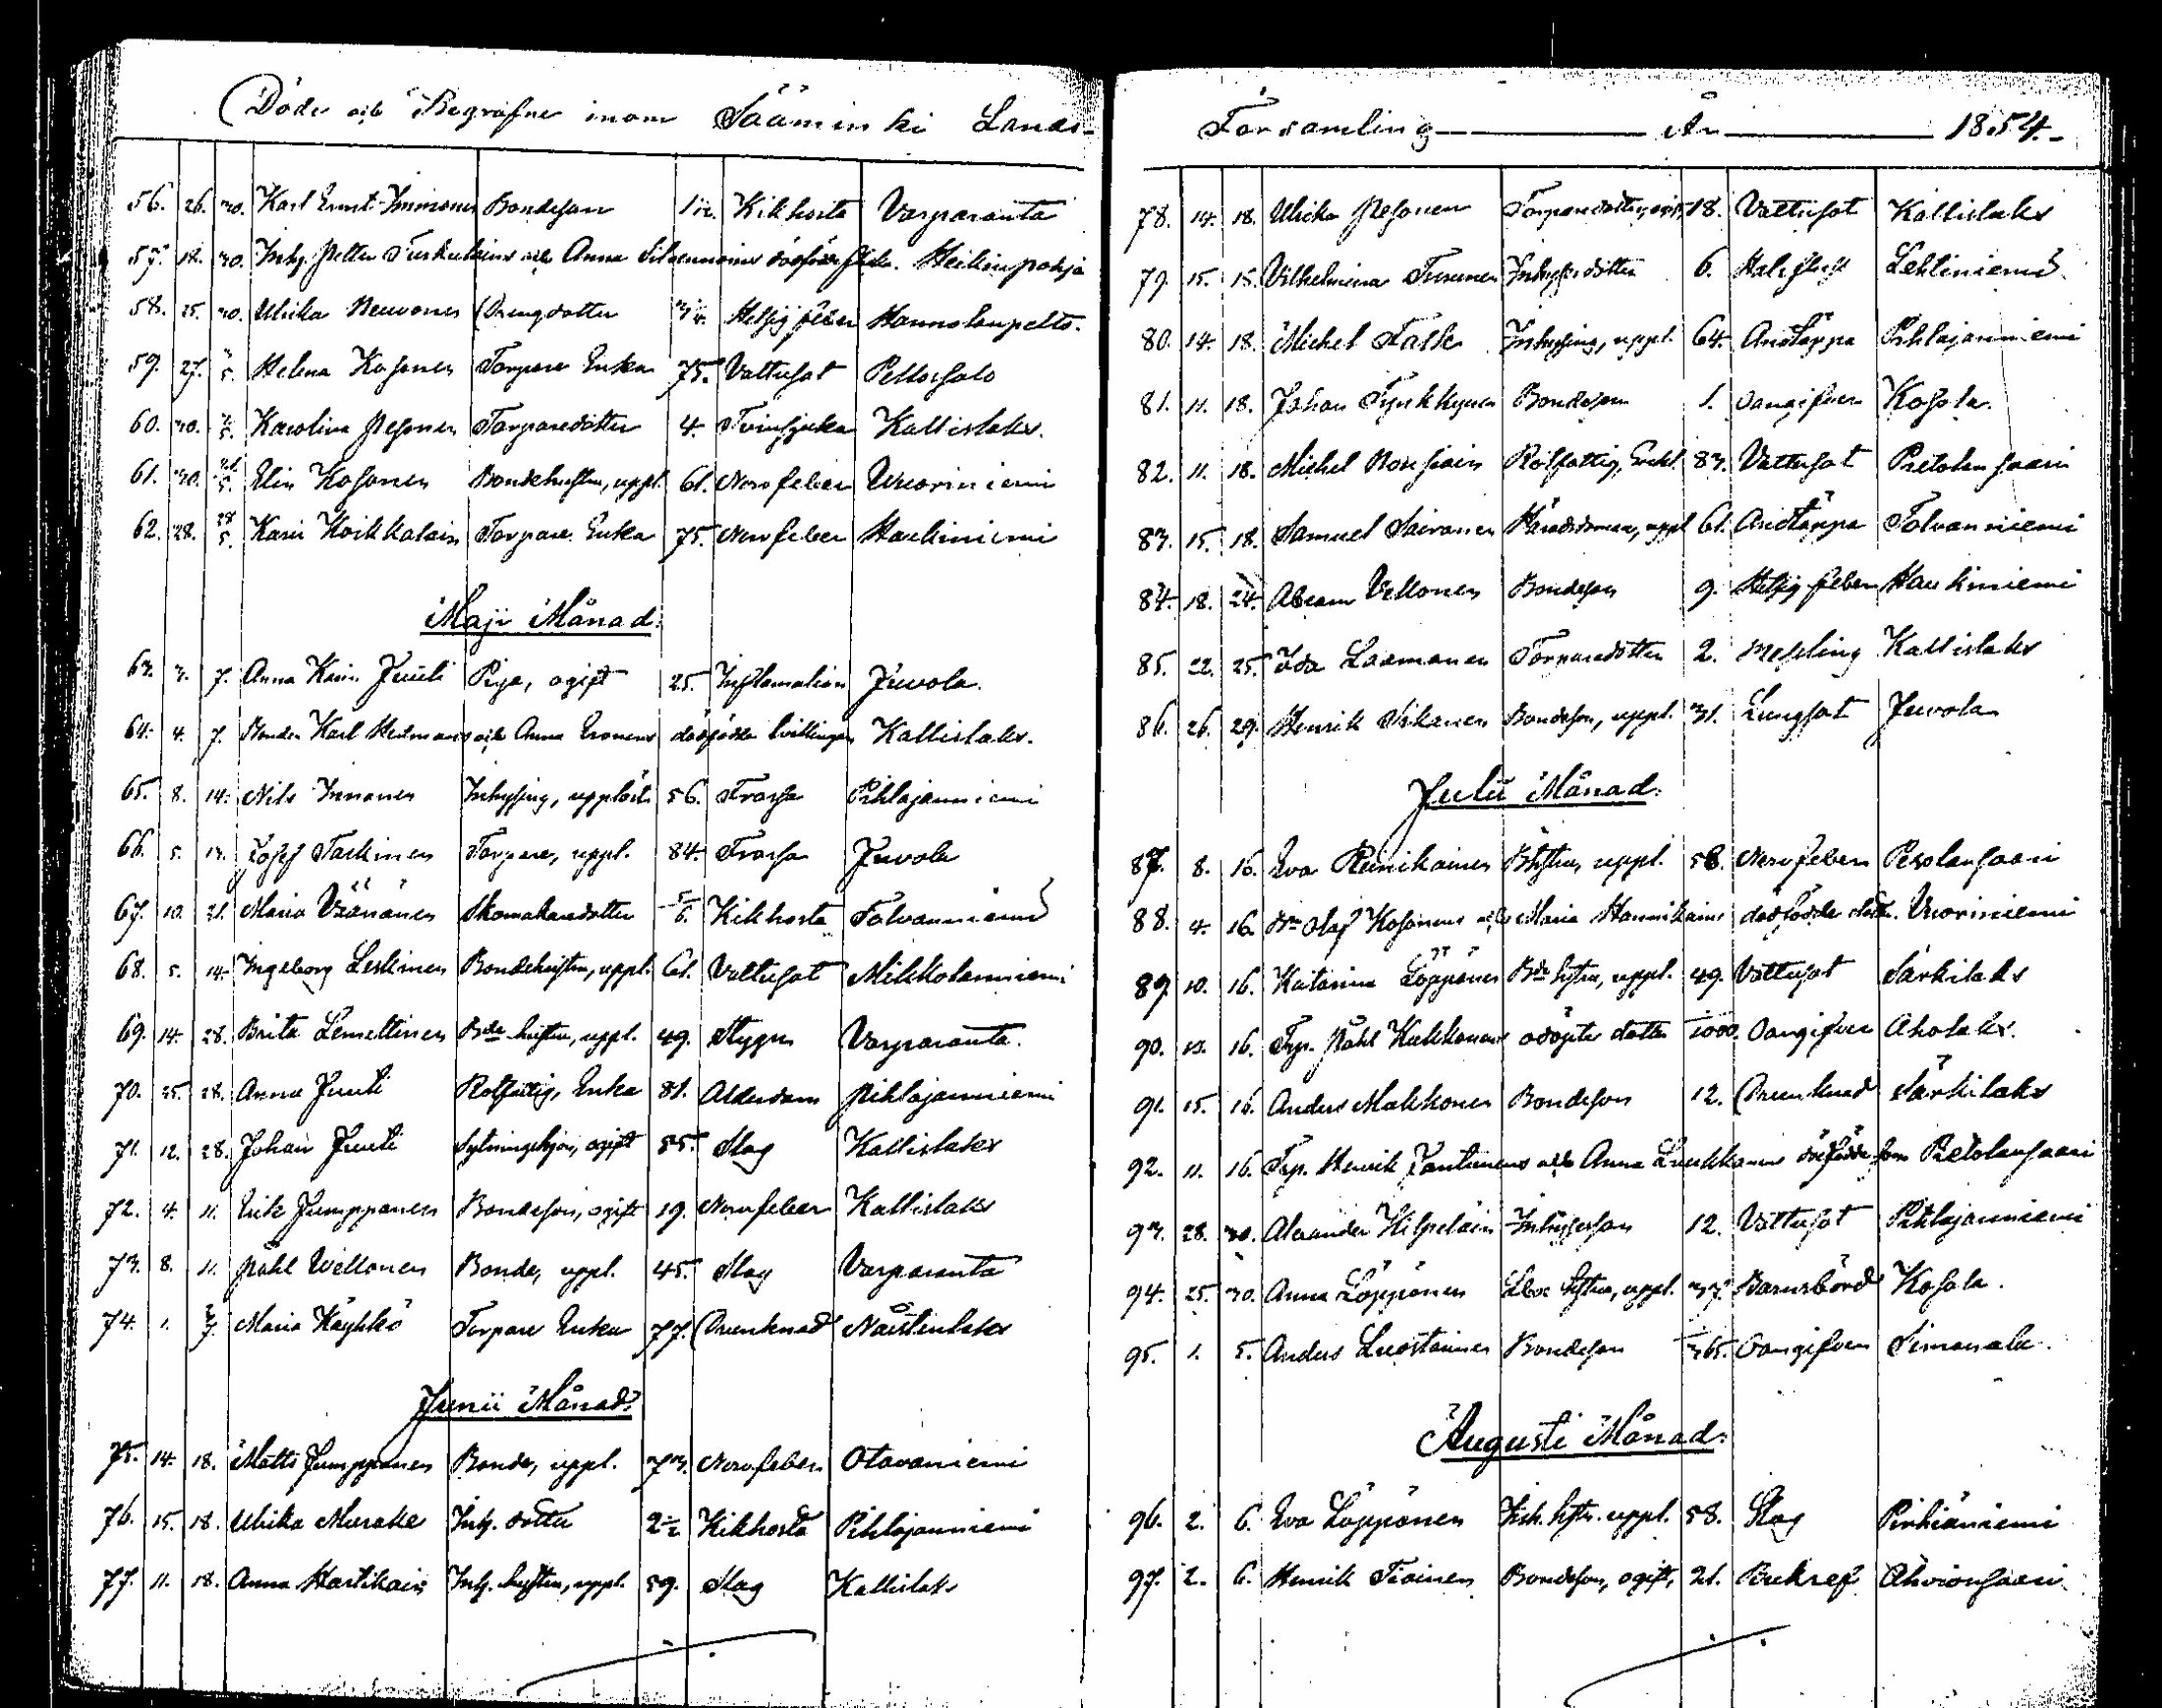 Döde och Begrafne inom Sääminki Lands-
56. 26. 30. Karl Ernst Immonen Bondeson 1 1/2. Kikhosta Varparanta
57. 18. 30. Inhs. Petter Turkulains och Anna Silvennoines dödfödde flicka. Heikinpohja
58. 25. 30. Ulrika Neuvonen Drengdotter 3/4. Hetsig feber Hannolanpelto.
59. 27. 7/5. Helena Kosonen Torpare Enka 75. Vattusot Pellossalo
60. 30. 7/5. Karolina Pesonen Torparedotter 4. Tvinsjuka Kallislaks.
61. 30. 21/5. Elin Kosonen Bondehustru, uppl. 61. Nervfeber Vuoriniemi
62. 28. 28/5. Karin Koikkalain Torpare Enka 75. Nervfeber Haukiniemi
Maji Månad:
63. 3. 7. Anna Kain. Juuti Piga, ogift 25. Inflamation Juvola.
64. 4. 7. Bonden Karl Hedmans och Anna Eronens dödfödde tvillingar Kallislaks.
65. 8. 14. Nils Innanen Inhysing, upplöst 56. Frossa Pihlajanniemi
66. 5. 13. Josef Taskinen Torpare, uppl. 84. Frossa Juvola
67. 10. 21. Maria Väänänen Skomakaredotter 5/6. Kikhosta Tolvanniemi
68. 5. 14. Ingeborg Leskinen Bondehustru, uppl. 61. Vattusot Mikkolanniemi
69. 14. 28. Brita Lemettinen Bde hustru, uppl. 49. Stygn Varparanta.
70. 25. 28. Anna Juuti Rotfattig, Enka 81. Ålderdom Pihlajanniemi
71. 12. 28. Johan Juuti Sytningshjon, ogift 55. Slag Kallislaks
72. 4. 11. Erik Jumppanen Bondeson, ogift 19. Nervfeber Kallislaks
73. 8. 11. Påhl Wellonen Bonde, uppl. 45. Slag Varparanta
74. 1. 3/7. Maria Käyhkö Torpare Enka 77. Drunknad Naistenlaks
Junii Månad:
75. 14. 18. Matts Jumppanen Bonde, uppl. 73. Nervfeber Otavaniemi
76. 15. 18. Ulrika Murake Inh. dotter 2 1/2 Kikhosta Pihlajanniemi
77. 11. 18. Anna Hartikain Inh. hustru, uppl. 59. Slag Kallislaks
Församling År 1854.
78. 14. 18. Ulrika Pesonen Torparedotter, ogift 18. Vattusot Kallislaks
79. 15. 15. Vilhelmina Turunen Inhysesdotter 6. Halsfluss Lehtiniemi
80. 14. 18. Michel Falk Inhysing, uppl. 64. Andtäppa Pihlajanniemi
81. 11. 18. Johan Tynkkynen Bondeson 1. Oangifven Kosola.
82. 11. 18. Michel Rotfattig, Enkl. 83. Vattusot Pietolansaari
83. 15. 18. Samuel Sairanen Häradsdomare, uppl 61. Andtäppa Tolvanniemi
84. 18. 24. Abram Vellonen Bondeson 9. Hetsig feber Haukiniemi
85. 22. 25. Ida Laamanen Torparedotter 2. Messling Kallislaks
86. 26. 29. Henrik Sikanen Bondeson, uppl. 31. Lungsot Juvola
Julii Månad:
87. 8. 16. Eva Reinikainen Bhstru, uppl. 58. Nervfeber Pesolansaari
88. 4. 16. Bn Olof Kosonens och Maria Hannikains dödfödde dotter. Vuoriniemi
89. 10. 16. Katarina Löppönen Bde hstru, uppl. 49. Vattusot Särkilaks
90. 13. 16. Trp. Påhl Kukkonens odöpte dotter 1000. Oangifven Aholaks.
91. 15. 16. Anders Makkonen Bondeson 12. Drunknad Särkilaks
92. 11. 16. Trp. Henrik Jantunens och Anna Luukkanens dödfödde son Pietolansaari
93. 28. 30. Alexander Hilpeläin Inhysesson 12. Vattusot Pihlajanniemi
94. 25. 30. Anna Löppönen hstru, uppl. 37. Barnsbörd Kosola.
95. 1. 5. Anders Luostarinen Bondeson 365. Oangifven Simanala.
Augusti Månad:
96. 2. 6. Eva Löppönen hstr. uppl. 58. Slag Pirhiäniemi
97. 2. 6. Henrik Tiainen Bondeson, ogift, 21. Bukref Ahvionsaari.